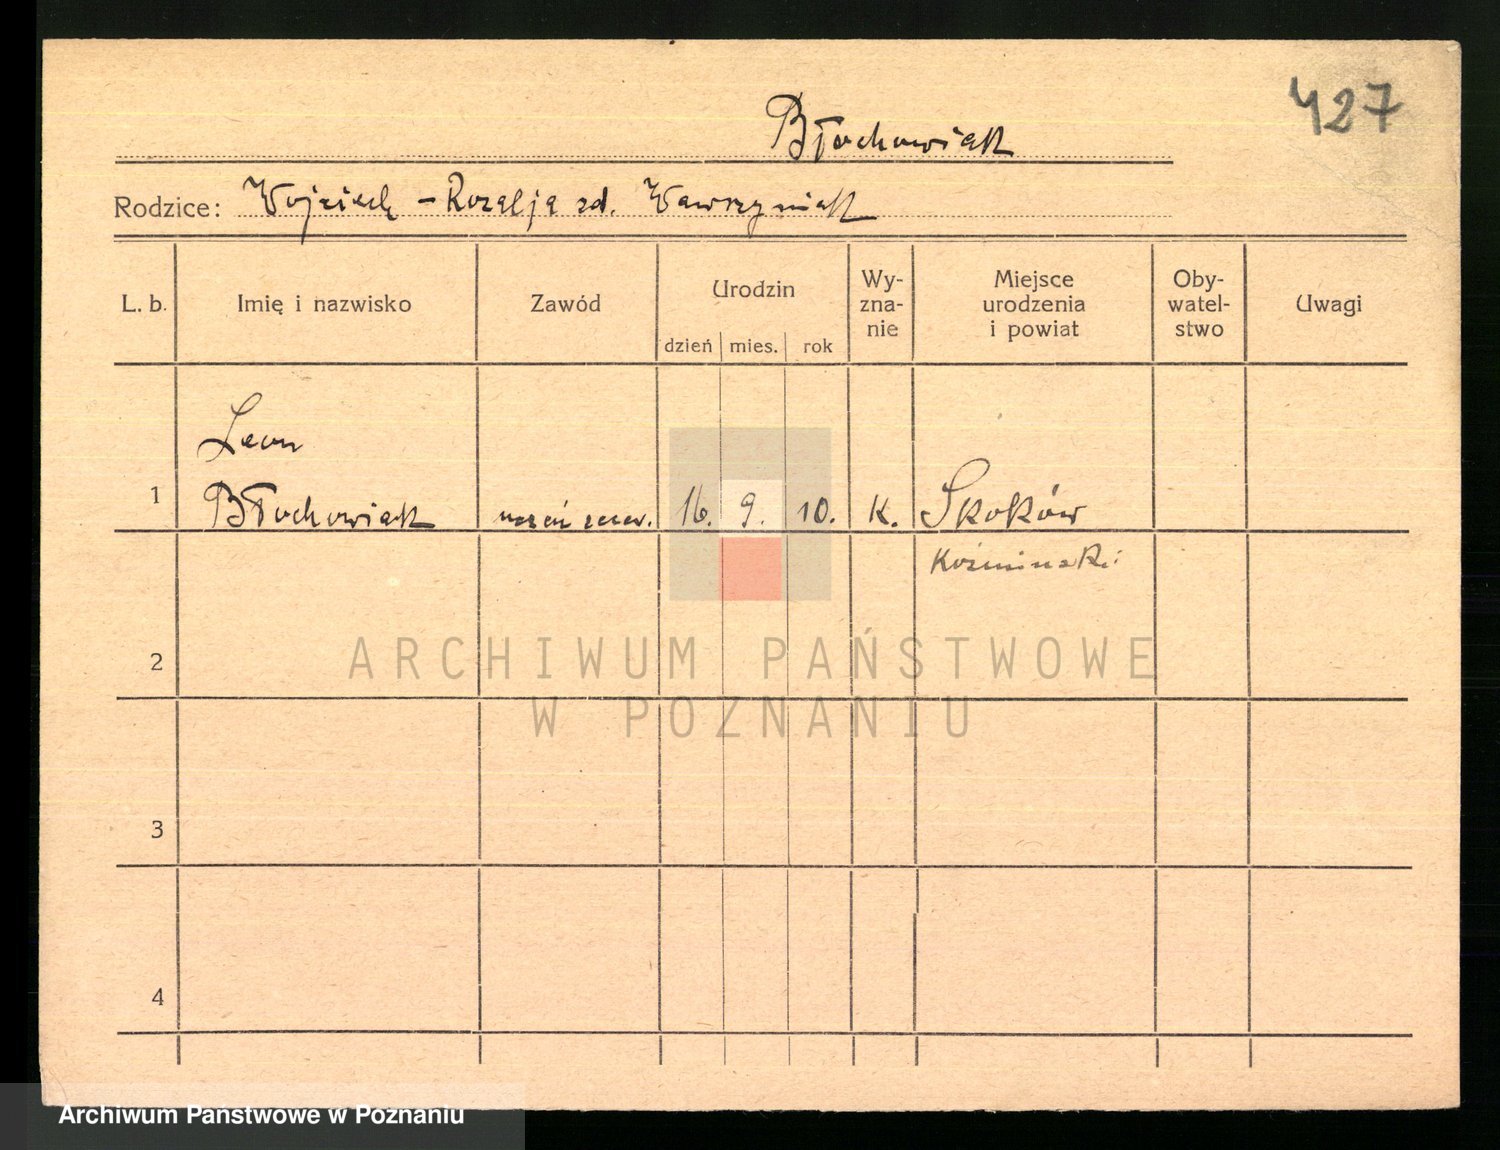 427
Błochowiak
Rodzice: Wojciech - Rozalja zd. Wawrzyniak
L. b. Imię i nazwisko Zawód Urodzin dzień mies. rok Wy-zna-nie Miejsce urodzenia i powiat Oby-watel-stwo Uwagi
Leon
1 Błochowiak uczeń szew. 16. 9. 10. K. Skoków
Koźmiński
2
3
4
ARCHIWUM PAŃSTWOWE
W POZNANIU
Archiwum Państwowe w Poznaniu